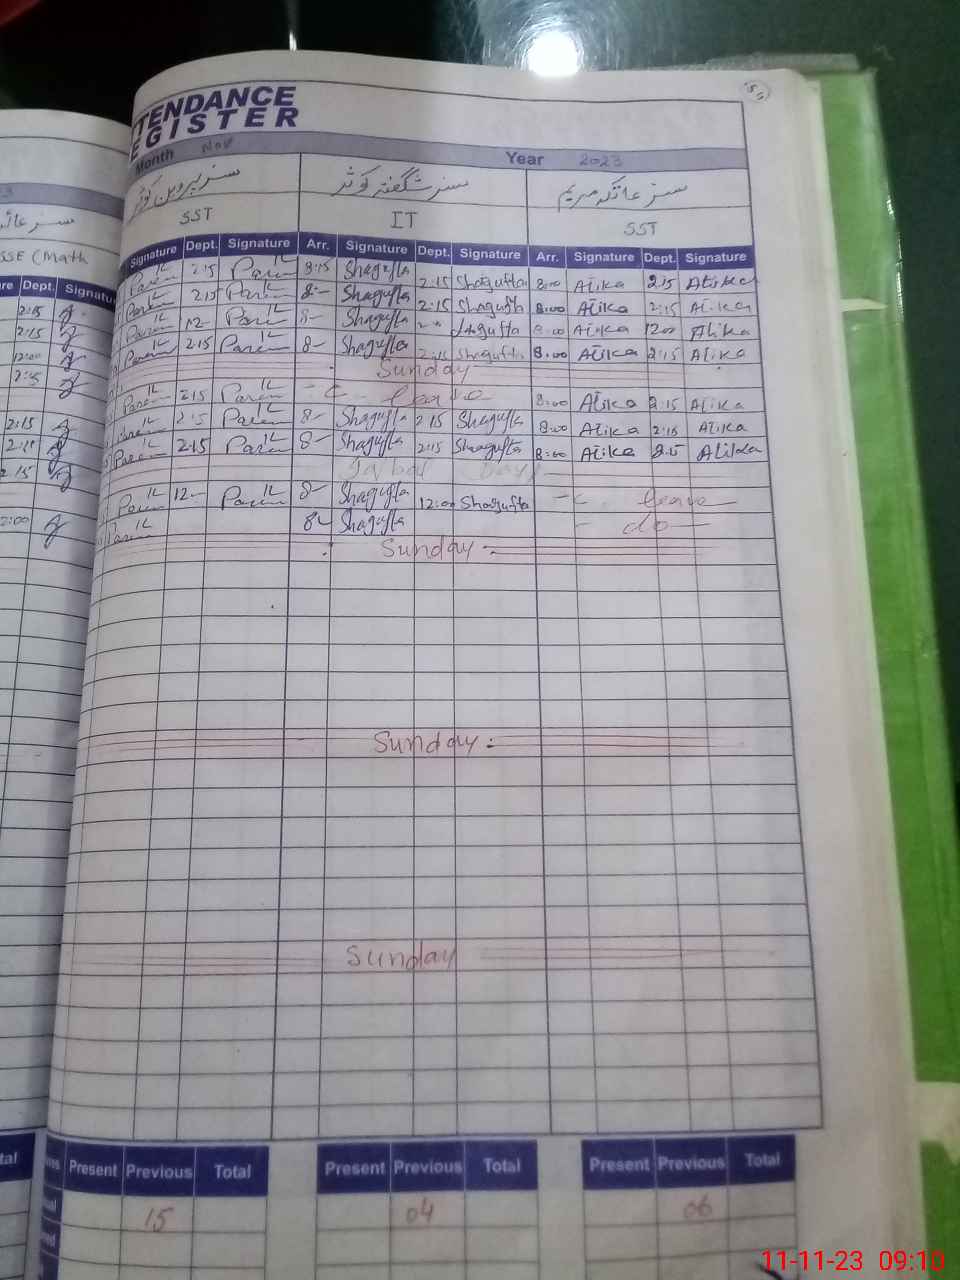 TENDANCE
EGISTER
Month Nov Year 2023
مسز پروین کوثر مسز شگفتہ کوثر مسز عاتکہ مریم
SST IT SST
SSE (Math
Signature Dept. Signature Arr. Signature Dept. Signature Arr. Signature Dept. Signature
re Dept. Signatu
2:15 8:15 Shagufta 2:15 Shagufta 8:00 Atika 2:15 Atika
2:15 2:15 8- Shagufta 2:15 Shagufta 8:00 Atika 2:15 Atika
2:15 12- 8- Shagufta Shagufta 8:00 Atika 12:00 Atika
12:00 2:15 8- Shagufta 2:15 Shagufta 8:00 Atika 2:15 Atika
Sunday
2:15 c. leave 8:00 Atika 2:15 Atika
2:15 2:15 8- Shagufta 2:15 Shagufta 8:00 Atika 2:15 Atika
2:15 8- Shagufta 2:15 Shagufta 8:00 Atika Atika
2:15 Iqbal Day
12- 8- Shagufta 12:00 Shagufta c. leave
2:00 8- Shagufta do
Sunday
Sunday
Sunday
tal Present Previous Total Present Previous Total Present Previous Total
15 04 06
11-11-23 09:10